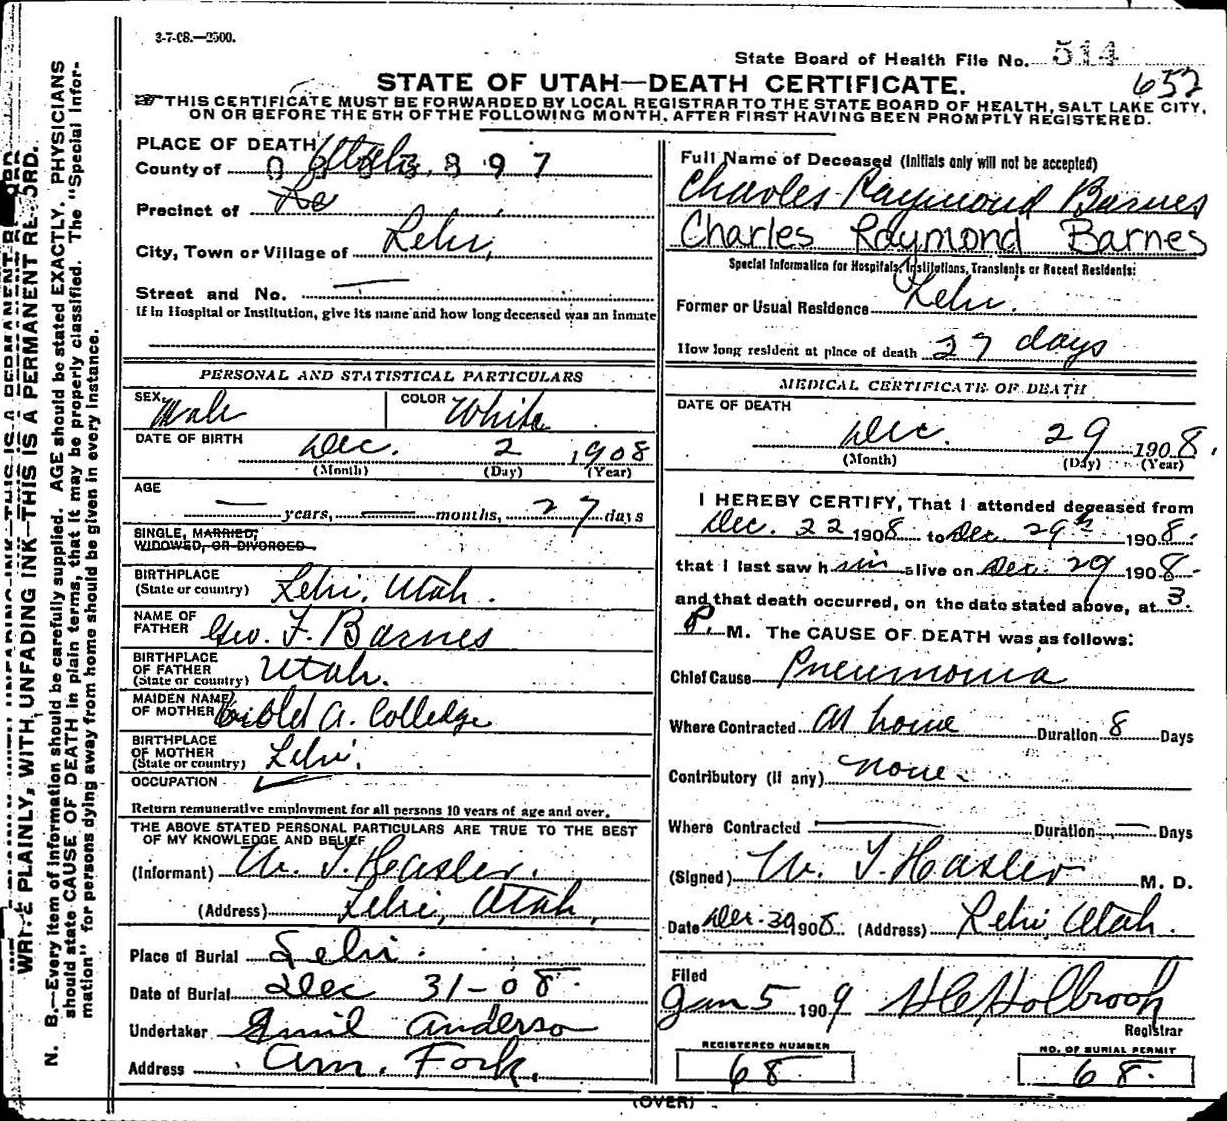 3-7-08.—2500.
State Board of Health File No. 514
652
STATE OF UTAH—DEATH CERTIFICATE.
THIS CERTIFICATE MUST BE FORWARDED BY LOCAL REGISTRAR TO THE STATE BOARD OF HEALTH, SALT LAKE CITY,
ON OR BEFORE THE 5TH OF THE FOLLOWING MONTH, AFTER FIRST HAVING BEEN PROMPTLY REGISTERED.
WRITE PLAINLY, WITH UNFADING INK—THIS IS A PERMANENT RECORD.
N. B.—Every item of information should be carefully supplied. AGE should be stated EXACTLY. PHYSICIANS
should state CAUSE OF DEATH in plain terms, that it may be properly classified. The "Special Infor-
mation" for persons dying away from home should be given in every instance.
PLACE OF DEATH
County of Utah 897
Precinct of Le
City, Town or Village of Lehi,
Street and No. —
If in Hospital or Institution, give its name and how long deceased was an inmate
PERSONAL AND STATISTICAL PARTICULARS
SEX Male COLOR White
DATE OF BIRTH Dec. 2 1908
(Month) (Day) (Year)
AGE
— years, — months, 27 days
SINGLE, MARRIED,
WIDOWED, OR DIVORCED
BIRTHPLACE
(State or country) Lehi, Utah.
NAME OF
FATHER Geo. F. Barnes
BIRTHPLACE
OF FATHER
(State or country) Utah.
MAIDEN NAME
OF MOTHER A. Colledge
BIRTHPLACE
OF MOTHER
(State or country) Lehi.
OCCUPATION
Return remunerative employment for all persons 10 years of age and over.
THE ABOVE STATED PERSONAL PARTICULARS ARE TRUE TO THE BEST
OF MY KNOWLEDGE AND BELIEF
(Informant) W. T. Hasler.
(Address) Lehi, Utah,
Place of Burial Lehi.
Date of Burial Dec 31-08.
Undertaker Emil Anderso
Address Am. Fork.
Full Name of Deceased (Initials only will not be accepted)
Charles Raymond Barnes
Charles Raymond Barnes
Special Information for Hospitals, Institutions, Transients or Recent Residents:
Former or Usual Residence Lehi.
How long resident at place of death 27 days
MEDICAL CERTIFICATE OF DEATH
DATE OF DEATH
Dec. 29 1908.
(Month) (Day) (Year)
I HEREBY CERTIFY, That I attended deceased from
Dec. 22 1908 to Dec. 29th 1908.
that I last saw him alive on Dec. 29 1908.
and that death occurred, on the date stated above, at 3.
P. M. The CAUSE OF DEATH was as follows:
Chief Cause Pneumonia
Where Contracted At home Duration 8 Days
Contributory (if any) none.
Where Contracted — Duration — Days
(Signed) W. T. Hasler M. D.
Date Dec. 30 1908. (Address) Lehi, Utah.
Filed
Jan 5 1909 H C Holbrook
Registrar
REGISTERED NUMBER
68
NO. OF BURIAL PERMIT
68.
(OVER)